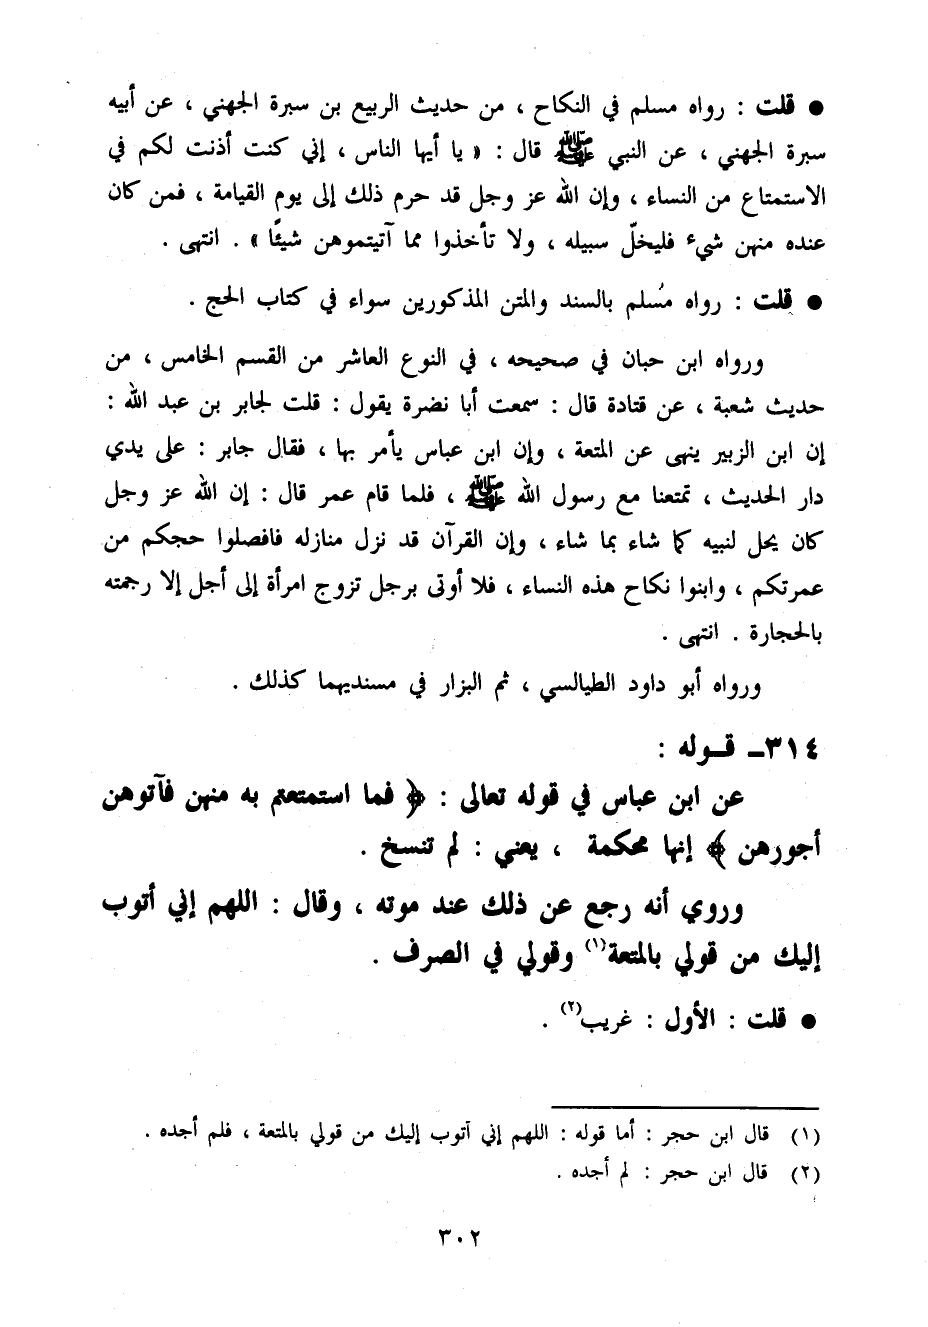 ● قلت : رواه مسلم في النكاح ، من حديث الربيع بن سبرة الجهني ، عن أبيه
سبرة الجهني ، عن النبي ﷺ قال : « يا أيها الناس ، إني كنت أذنت لكم في
الاستمتاع من النساء ، وإن الله عز وجل قد حرم ذلك إلى يوم القيامة ، فمن كان
عنده منهن شيء فليخلّ سبيله ، ولا تأخذوا مما آتيتموهن شيئًا » . انتهى .
● قلت : رواه مُسلم بالسند والمتن المذكورين سواء في كتاب الحج .
ورواه ابن حبان في صحيحه ، في النوع العاشر من القسم الخامس ، من
حديث شعبة ، عن قتادة قال : سمعت أبا نضرة يقول : قلت لجابر بن عبد الله :
إن ابن الزبير ينهى عن المتعة ، وإن ابن عباس يأمر بها ، فقال جابر : على يدي
دار الحديث ، تمتعنا مع رسول الله ﷺ ، فلما قام عمر قال : إن الله عز وجل
كان يحل لنبيه كما شاء بما شاء ، وإن القرآن قد نزل منازله فافصلوا حجكم من
عمرتكم ، وابنوا نكاح هذه النساء ، فلا أوتى برجل تزوج امرأة إلى أجل إلا رجمته
بالحجارة . انتهى .
ورواه أبو داود الطيالسي ، ثم البزار في مسنديهما كذلك .
٣١٤ـ قـوله :
عن ابن عباس في قوله تعالى : ﴿ فما استمتعتم به منهن فآتوهن
أجورهن ﴾ إنها محكمة ، يعني : لم تنسخ .
وروي أنه رجع عن ذلك عند موته ، وقال : اللهم إني أتوب
إليك من قولي بالمتعة(١) وقولي في الصرف .
● قلت : الأول : غريب(٢) .
(١) قال ابن حجر : أما قوله : اللهم إني أتوب إليك من قولي بالمتعة ، فلم أجده .
(٢) قال ابن حجر : لم أجده .
٣٠٢